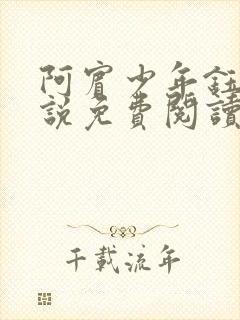 阿賓少年鈺
說免費閱讀
千載流年